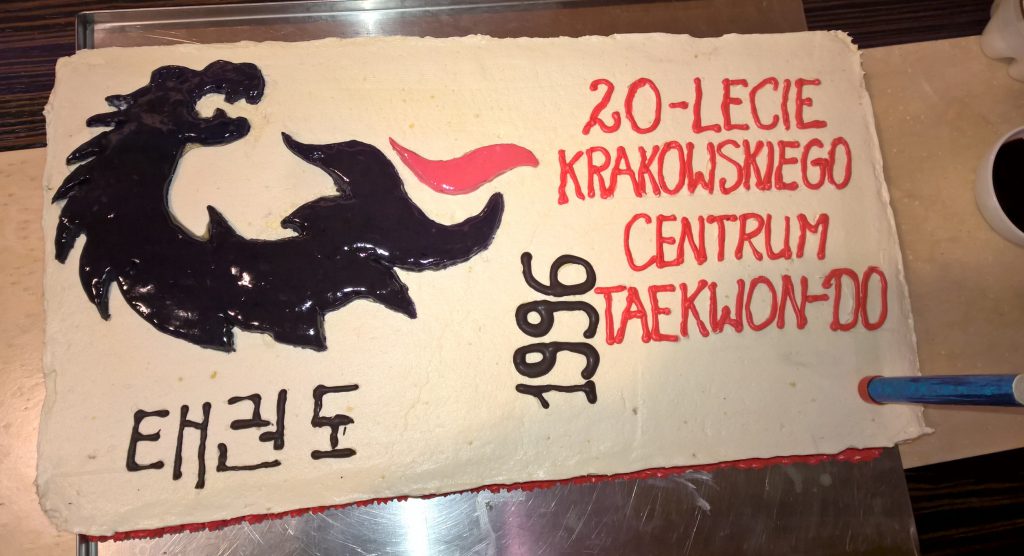 20-LECIE
KRAKOWSKIEGO
CENTRUM
TAEKWON-DO
1996
태권도